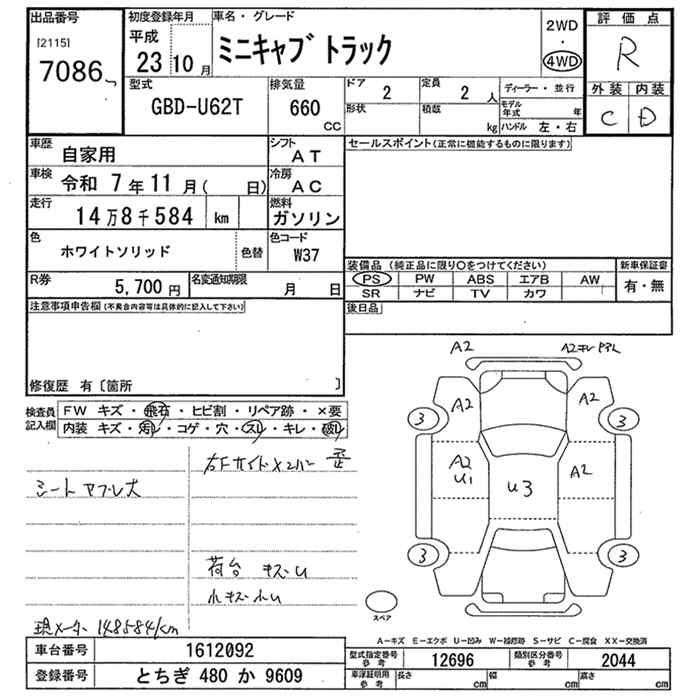 出品番号
[2115]
7086
初度登録年月
平成
23 10 月
車名・グレード
ミニキャブ トラック
2WD
・
4WD
評価点
R
外装 内装
C D
型式
GBD-U62T
排気量
660
CC
ドア
2
定員
2 人
形状
積載
kg
ディーラー・並行
モデル年式 年
ハンドル 左・右
車歴
自家用
シフト
AT
車検
令和 7年11月( 日)
冷房
AC
走行
14万8千584 km
燃料
ガソリン
色
ホワイトソリッド
色替
色コード
W37
R券
5,700円
名変通知期限
月 日
セールスポイント(正常に機能するものに限ります)
装備品 (純正品に限り○をつけてください)
PS PW ABS エアB AW
SR ナビ TV カワ
新車保証書
有・無
後日品
注意事項申告欄(不具合内容等は具体的に記入して下さい)
修復歴 有〔箇所 〕
検査員記入欄
FW キズ・飛石・ヒビ割・リペア跡・×要
内装 キズ・汚レ・コゲ・穴・スレ・キレ・破レ
シート ヤブレ大
荷台 キズU
小キズ小U
現メーター 148584km
A2
A2
A2
A2
3
3
A2
U1
U3
A2
3
3
スペア
A-キズ E-エクボ U-凹み W-補修跡 S-サビ C-腐食 XX-交換済
車台番号
1612092
登録番号
とちぎ 480 か 9609
型式指定番号
参考
12696
類別区分番号
参考
2044
車庫証明用
参考
長さ cm
幅 cm
高さ cm